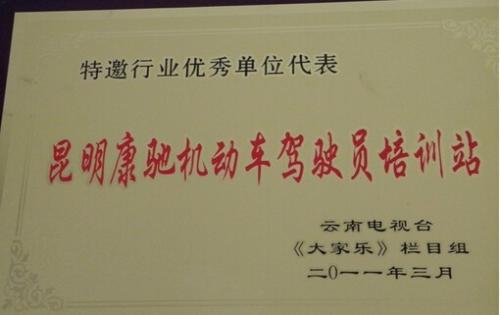 特邀行业优秀单位代表
昆明康驰机动车驾驶员培训站
云南电视台
《大家乐》栏目组
二0一一年三月